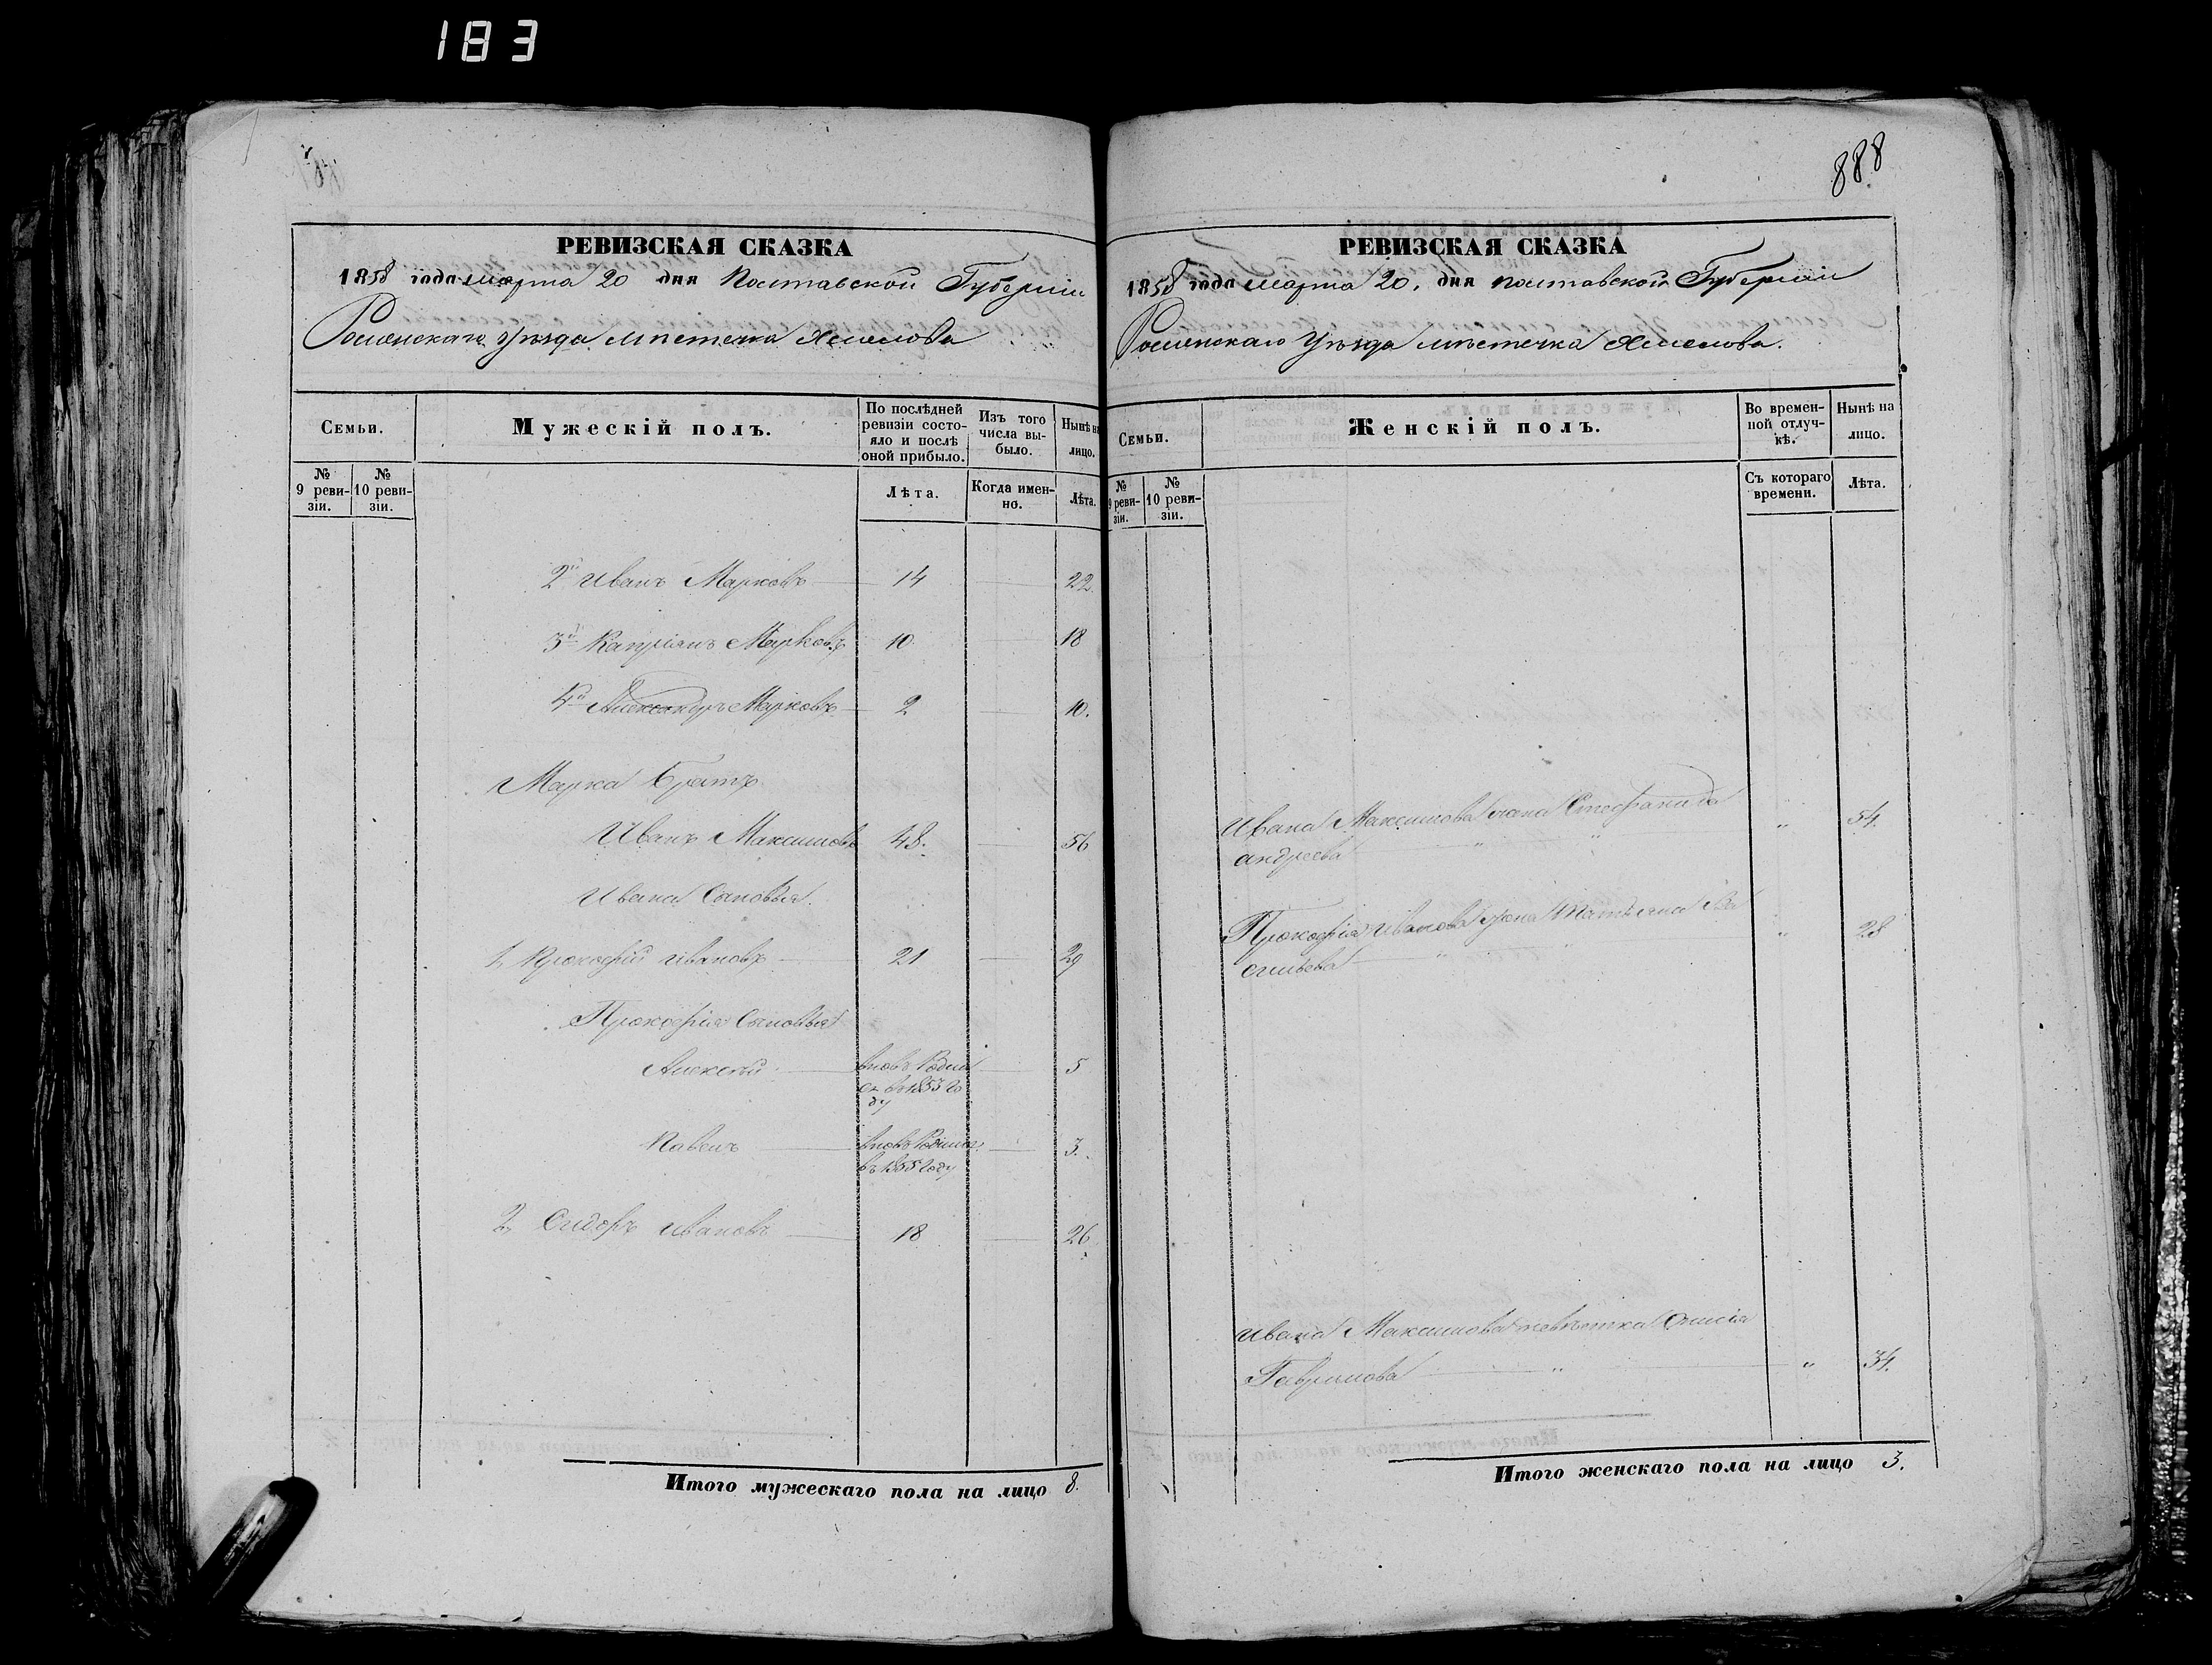 183
888
РЕВИЗСКАЯ СКАЗКА
1858 года марта 20 дня Полтавской Губерніи
Роменскаго Уѣзда мѣстечка Хмелова
Семьи.
Мужескій полъ.
По послѣдней ревизіи состояло и послѣ оной прибыло.
Изъ того числа выбыло.
Нынѣ на лицо.
№ 9 ревизіи.
№ 10 ревизіи.
Лѣта.
Когда именно.
Лѣта.
2й Иванъ Марковъ 14 22
3й Капріянъ Марковъ 10 18
4й Александръ Марковъ 2 10.
Марка братъ
Иванъ Максимовъ 48. 56
Ивана Сыновья.
1, Прокофій Ивановъ 21 29
Прокофія Сыновья
Алексѣй вновь Родил 5
ся въ 1853 го
ду
Павелъ вновь Родился 3.
въ 1855 году
2, Сидоръ Ивановъ 18 26
Итого мужескаго пола на лицо 8.
РЕВИЗСКАЯ СКАЗКА
1858 года марта 20. дня полтавской Губерніи
Роменскаго Уѣзда мѣстечка Хмелова.
Семьи.
Женскій полъ.
Во временной отлучкѣ.
Нынѣ на лицо.
№ 9 ревизіи.
№ 10 ревизіи.
Съ котораго времени.
Лѣта.
Ивана Максимова жена Стефанида 54.
андреева
Прокофія Иванова жена Татьяна Ва 28
сильева
Ивана Максимова невѣстка
Гаврилова 34.
Итого женскаго пола на лицо 3.